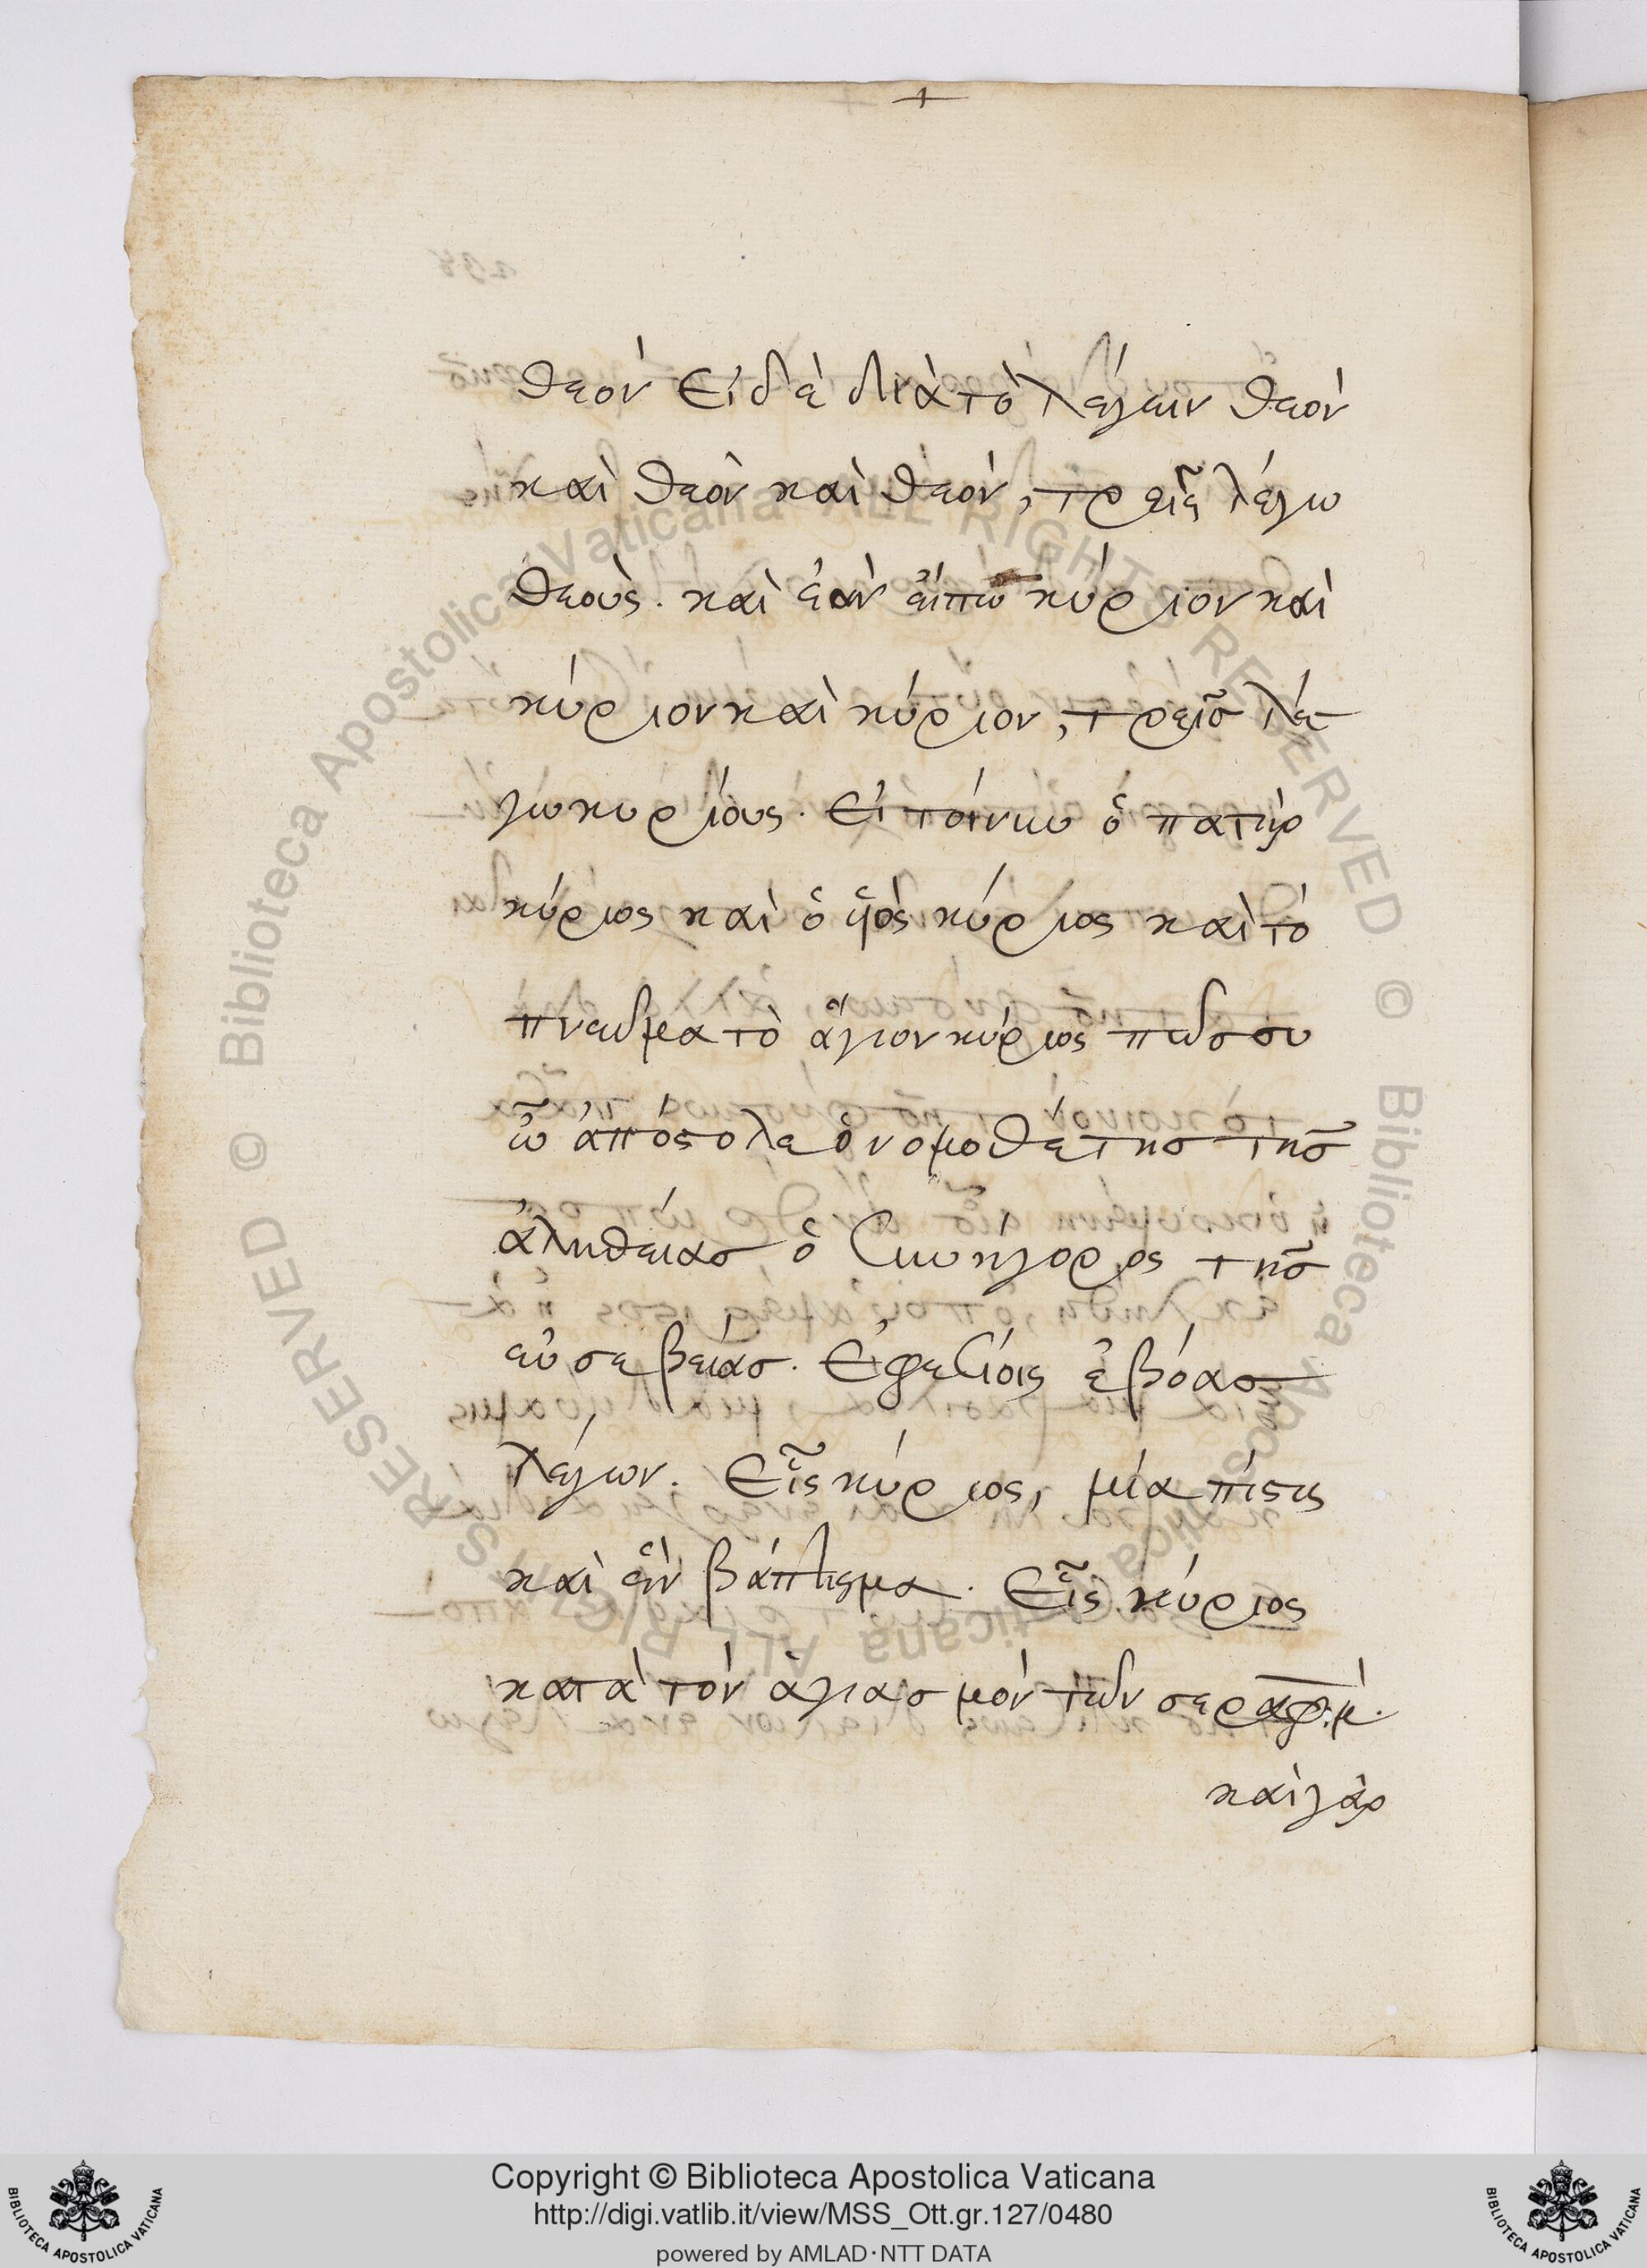 θεόν Εἰ δὲ διὰ τὸ λέγειν θεόν
καὶ θεὸν καὶ θεόν, τρεῖς λέγω
θεούς. καὶ ἐὰν εἴπω κύριον καὶ
κύριον καὶ κύριον, τρεῖσ λέ-
γω κυρίους. Εἰ τοίνυν ὁ πατὴρ
κύριος καὶ ὁ ὑιὸς κύριος καὶ τὸ
πνεῦμα τὸ ἅγιον κύριος πῶσ συ
ὦ ἀπόστολε ὁ νομοθέτησ τῆσ
ἀληθείασ ὁ συνήγορος τῆσ
εὐσεβείασ. Ἐφεσίοις ἐβόασ
λέγων. Εἷς κύριος, μία πίστις
καὶ ἓν βάπτισμα. Εἷς κύριος
κατὰ τὸν ἁγιασμόν τῶν σεραφίμ.
καὶ γὰρ
Copyright © Biblioteca Apostolica Vaticana
http://digi.vatlib.it/view/MSS_Ott.gr.127/0480
powered by AMLAD·NTT DATA
BIBLIOTECA APOSTOLICA VATICANA
BIBLIOTECA APOSTOLICA VATICANA
© Biblioteca Apostolica Vaticana ALL RIGHTS RESERVED
© Biblioteca Apostolica Vaticana ALL RIGHTS RESERVED